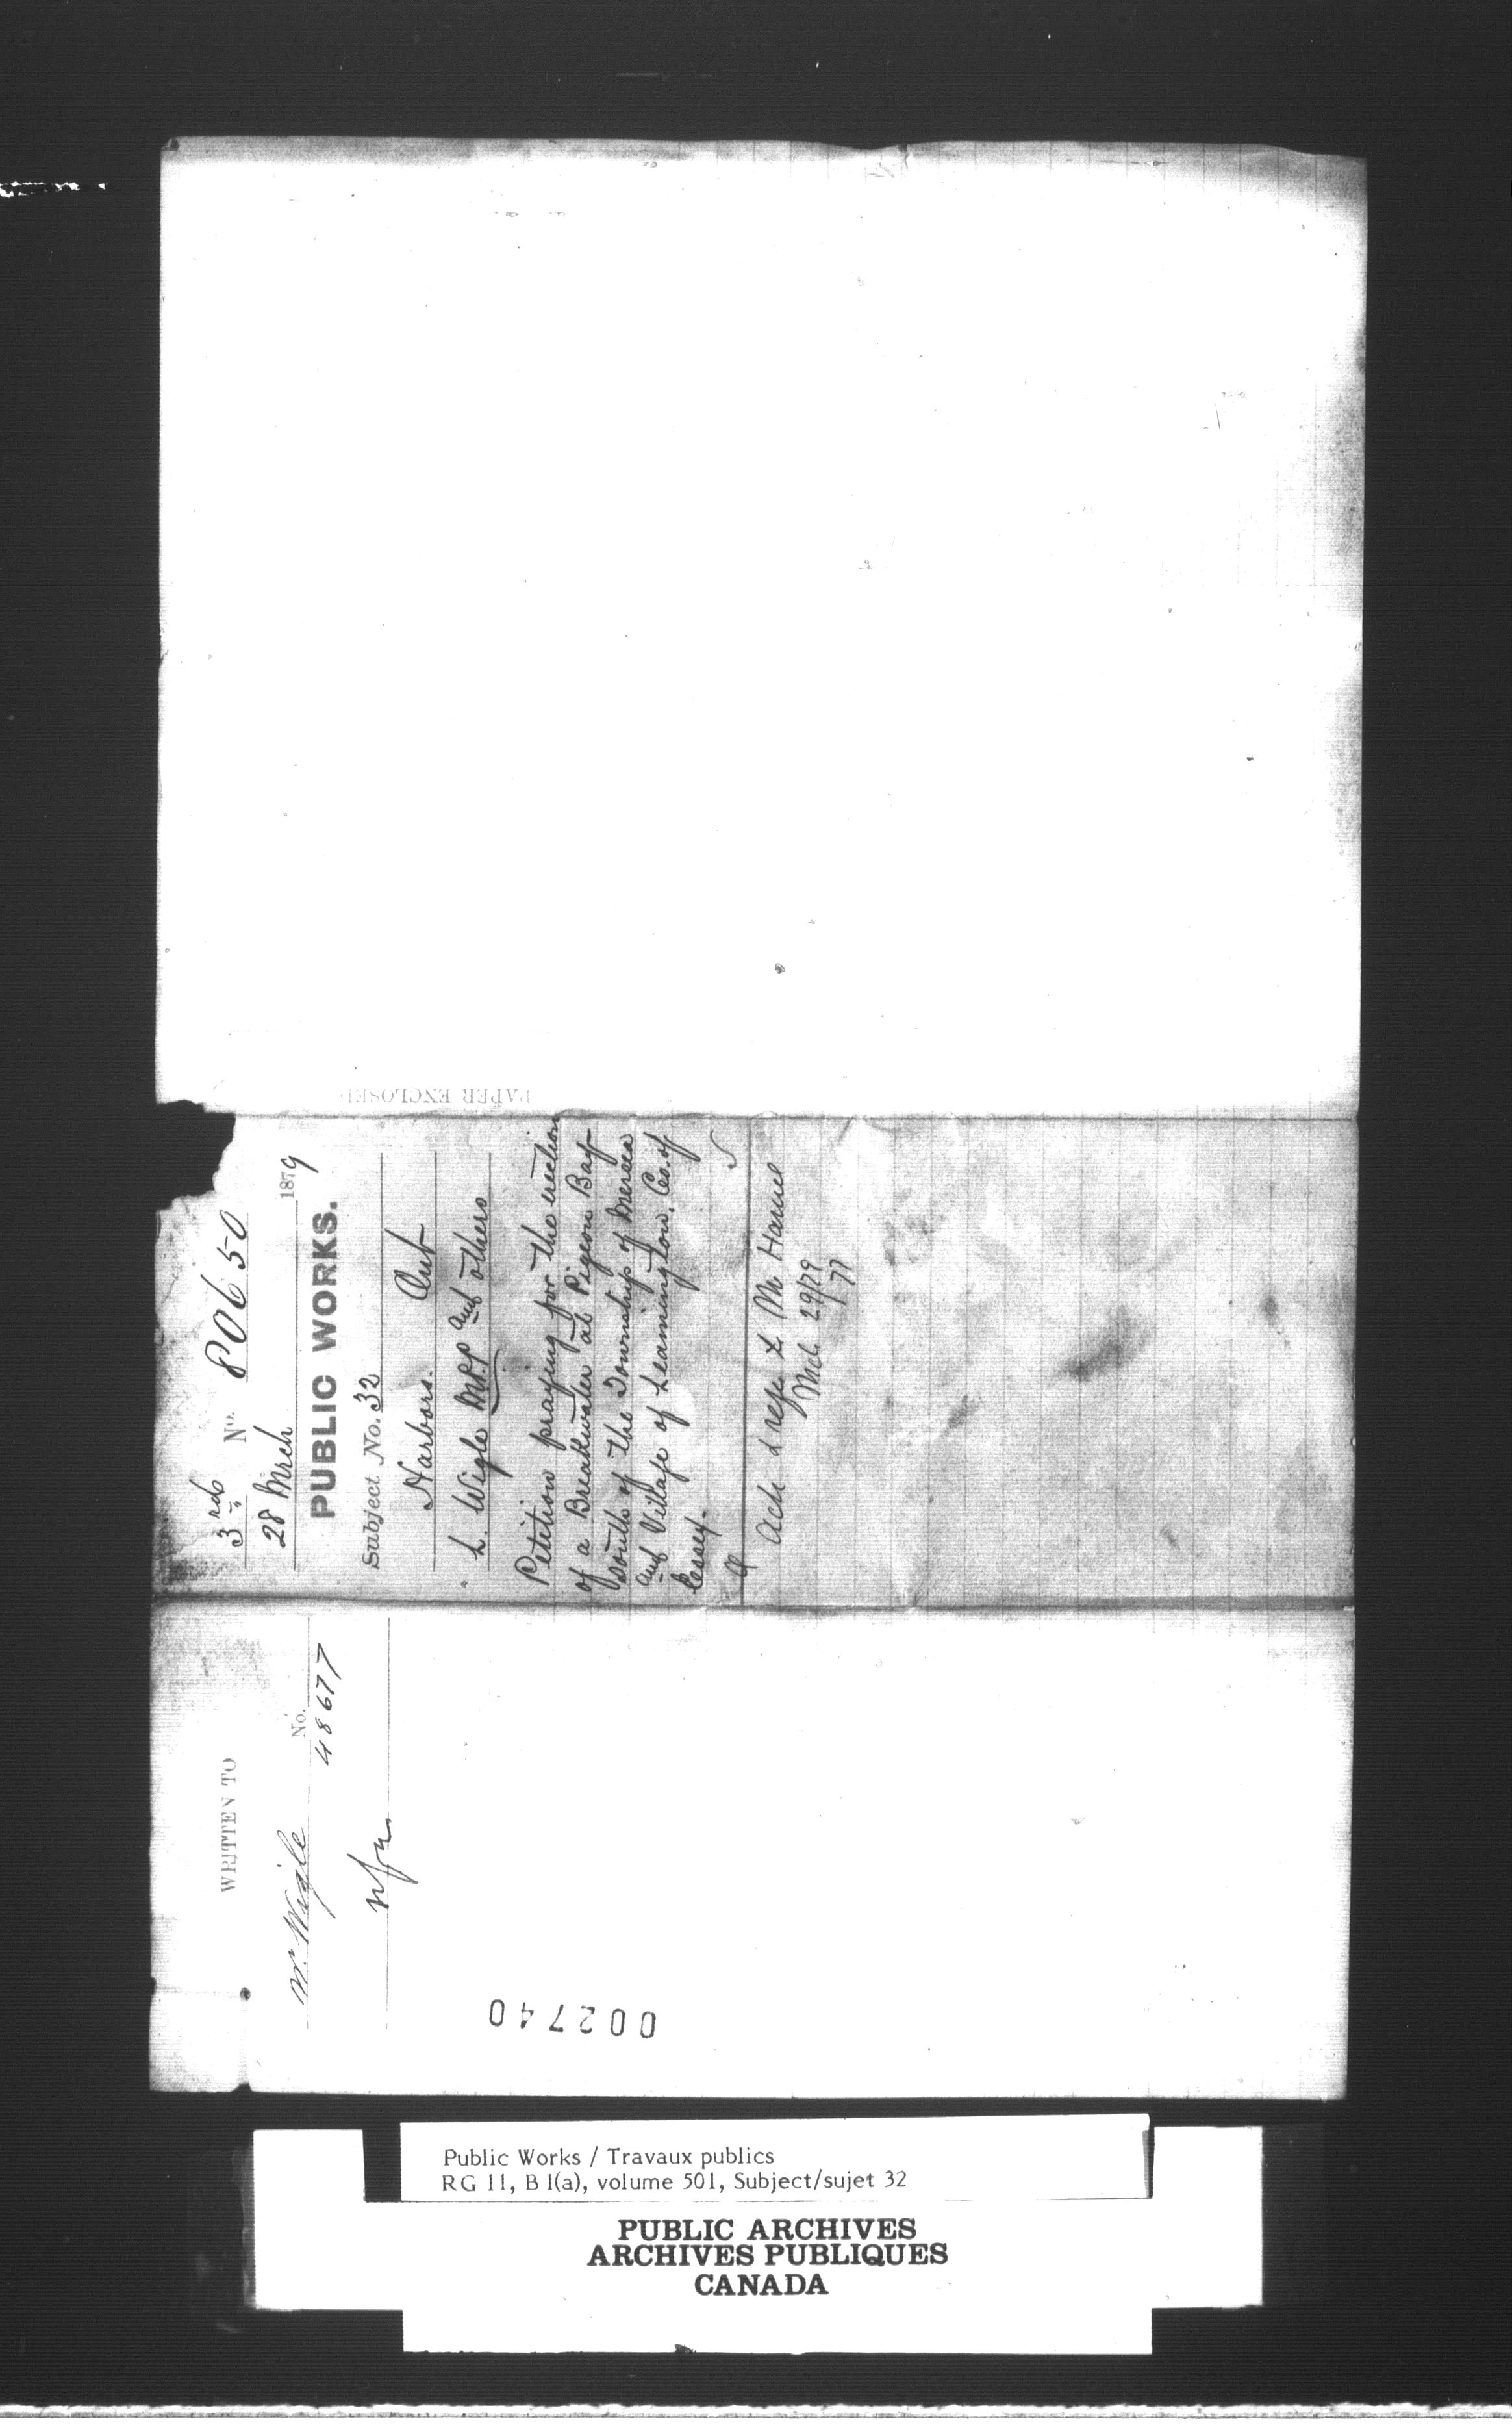 3rd No. 80650
28 Mrch 1879
PUBLIC WORKS.
Subject No. 32
Harbors. Ont
L. Wigle M.P.P and others
Petition praying for the erection
of a Breakwater at Pigeon Bay
South of the Township of Mersea
and Village of Leamington, Co. of
Essex.
Ack & refer
Mch 29/79
77
PAPER ENCLOSED
WRITTEN TO
No.
Mr. Wigle 48677
002740
Public Works / Travaux publics
RG 11, B 1(a), volume 501, Subject/sujet 32
PUBLIC ARCHIVES
ARCHIVES PUBLIQUES
CANADA